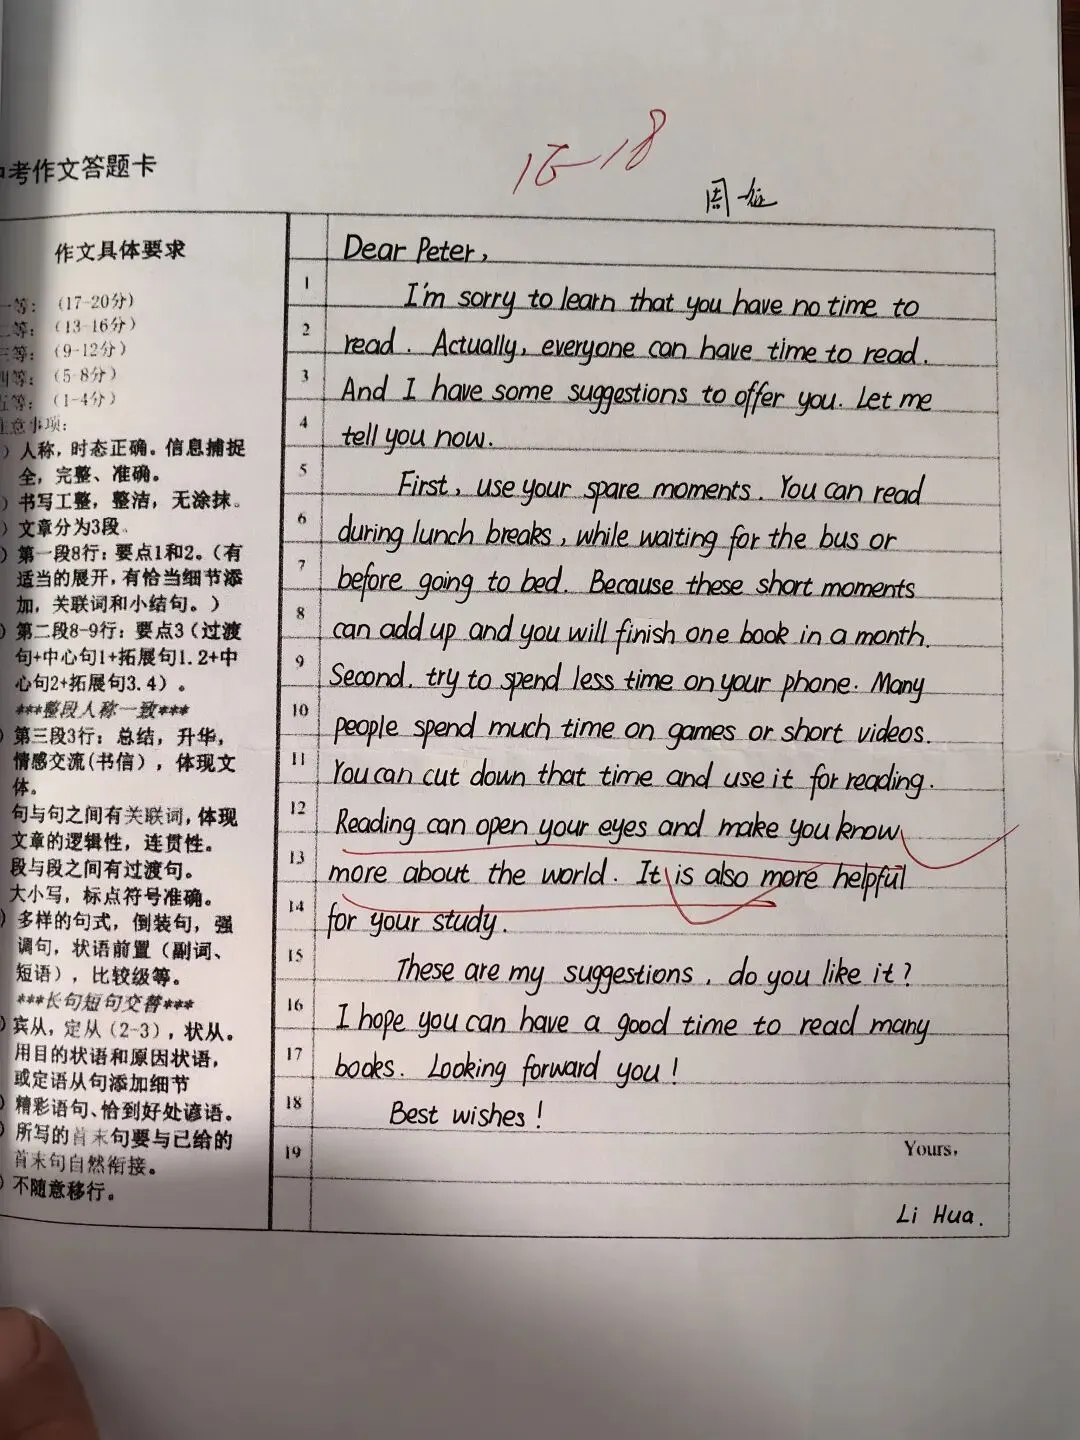 考作文答题卡
18
周
作文具体要求
等: (17-20分)
等: (13-16分)
等: (9-12分)
等: (5-8分)
等: (1-4分)
意事项:
) 人称，时态正确。信息捕捉
全，完整、准确。
) 书写工整，整洁，无涂抹。
) 文章分为3段。
) 第一段8行：要点1和2。（有
适当的展开，有恰当细节添
加，关联词和小结句。）
) 第二段8-9行：要点3（过渡
句+中心句1+拓展句1.2+中
心句2+拓展句3.4）。
***整段人称一致***
) 第三段3行：总结，升华，
情感交流(书信)，体现文
体。
句与句之间有关联词，体现
文章的逻辑性，连贯性。
段与段之间有过渡句。
大小写，标点符号准确。
) 多样的句式，倒装句，强
调句，状语前置（副词、
短语），比较级等。
***长句短句交替***
) 宾从，定从（2-3），状从。
用目的状语和原因状语，
或定语从句添加细节
) 精彩语句、恰到好处谚语。
) 所写的首末句要与已给的
首末句自然衔接。
) 不随意移行。
Dear Peter,
1 I'm sorry to learn that you have no time to
2 read. Actually, everyone can have time to read.
3 And I have some suggestions to offer you. Let me
4 tell you now.
5 First, use your spare moments. You can read
6 during lunch breaks, while waiting for the bus or
7 before going to bed. Because these short moments
8 can add up and you will finish one book in a month.
9 Second, try to spend less time on your phone. Many
10 people spend much time on games or short videos.
11 You can cut down that time and use it for reading.
12 Reading can open your eyes and make you know
13 more about the world. It is also more helpful
14 for your study.
15 These are my suggestions, do you like it?
16 I hope you can have a good time to read many
17 books. Looking forward you!
18 Best wishes!
19 Yours,
Li Hua.